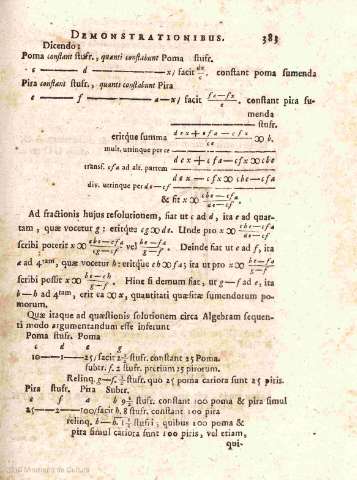 DEMONSTRATIONIBUS. 383
Dicendo:
Poma constant stufr., quanti constabunt Poma stufr.
c —— d —— x/ facit dx/c. constant poma sumenda
Pira constant stufr., quanti constabunt Pira
e —— f —— a — x/ facit fa — fx/e. constant pira sumenda
stufr.
eritque summa dex + cfa — cfx/ce ∞ b.
mult. utrinque per ce
dex + cfa — cfx ∞ cbe
transf. cfa ad alt. partem
dex — cfx ∞ cbe — cfa
div. utrinque per de — cf
& fit x ∞ cbe — cfa/de — cf
Ad fractionis hujus resolutionem, fiat ut c ad d, ita e ad quartam, quæ vocetur g: eritque cg ∞ de. Unde pro x ∞ cbe — cfa/de — cf
scribi poterit x ∞ cbe — cfa/cg — cf vel be — fa/g — f. Deinde fiat ut e ad f, ita
a ad 4tam, quæ vocetur h: eritque eh ∞ fa; ita ut pro x ∞ be — fa/g — f
scribi possit x ∞ be — eh/g — f. Hinc si demum fiat, ut g — f ad e, ita
b — h ad 4tam, erit ea ∞ x, quantitati quæsitæ sumendorum pomorum.
Quæ itaque ad quæstionis solutionem circa Algebram sequenti modo argumentandum esse inferunt
Poma stufr. Poma
c d e g
10 — 1 — 25/ facit 2½ stufr. constant 25 Poma.
subtr. f. 2 stufr. pretium 25 pirorum.
Relinq. g — f. ½ stufr. quo 25 poma cariora sunt 25 piris.
Pira stufr. Pira Subtr.
e f a b 9½ stufr. constant 100 poma & pira simul
25 — 2 — 100/ facit h. 8 stufr. constant 100 pira
relinq. b — h. 1½ stufri; quibus 100 poma &
pira simul cariora sunt 100 piris, vel etiam,
qui-